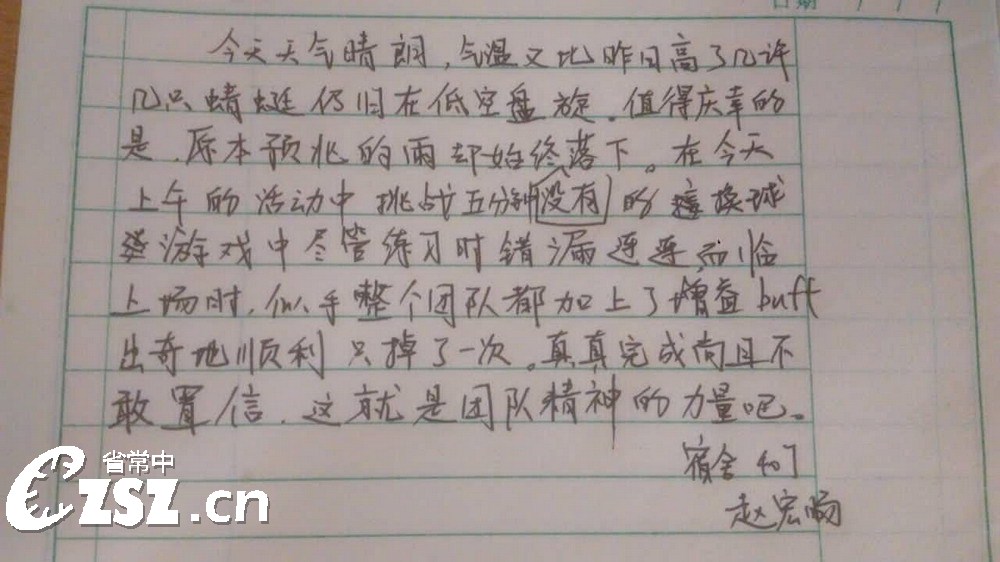 日期 / / /
今天天气晴朗，气温又比昨日高了几许
几只蜻蜓仍旧在低空盘旋。值得庆幸的
是，原本预兆的雨却始终没有落下。在今天
上午的活动中 挑战五分钟的 换球
游戏中尽管练习时错漏连连，而临
上场时，似乎整个团队都加上了增益buff
出奇地顺利 只掉了一次。真真完成尚且不
敢置信，这就是团队精神的力量吧。
宿舍 407
赵宏畅
省常中
CZSZ.cn